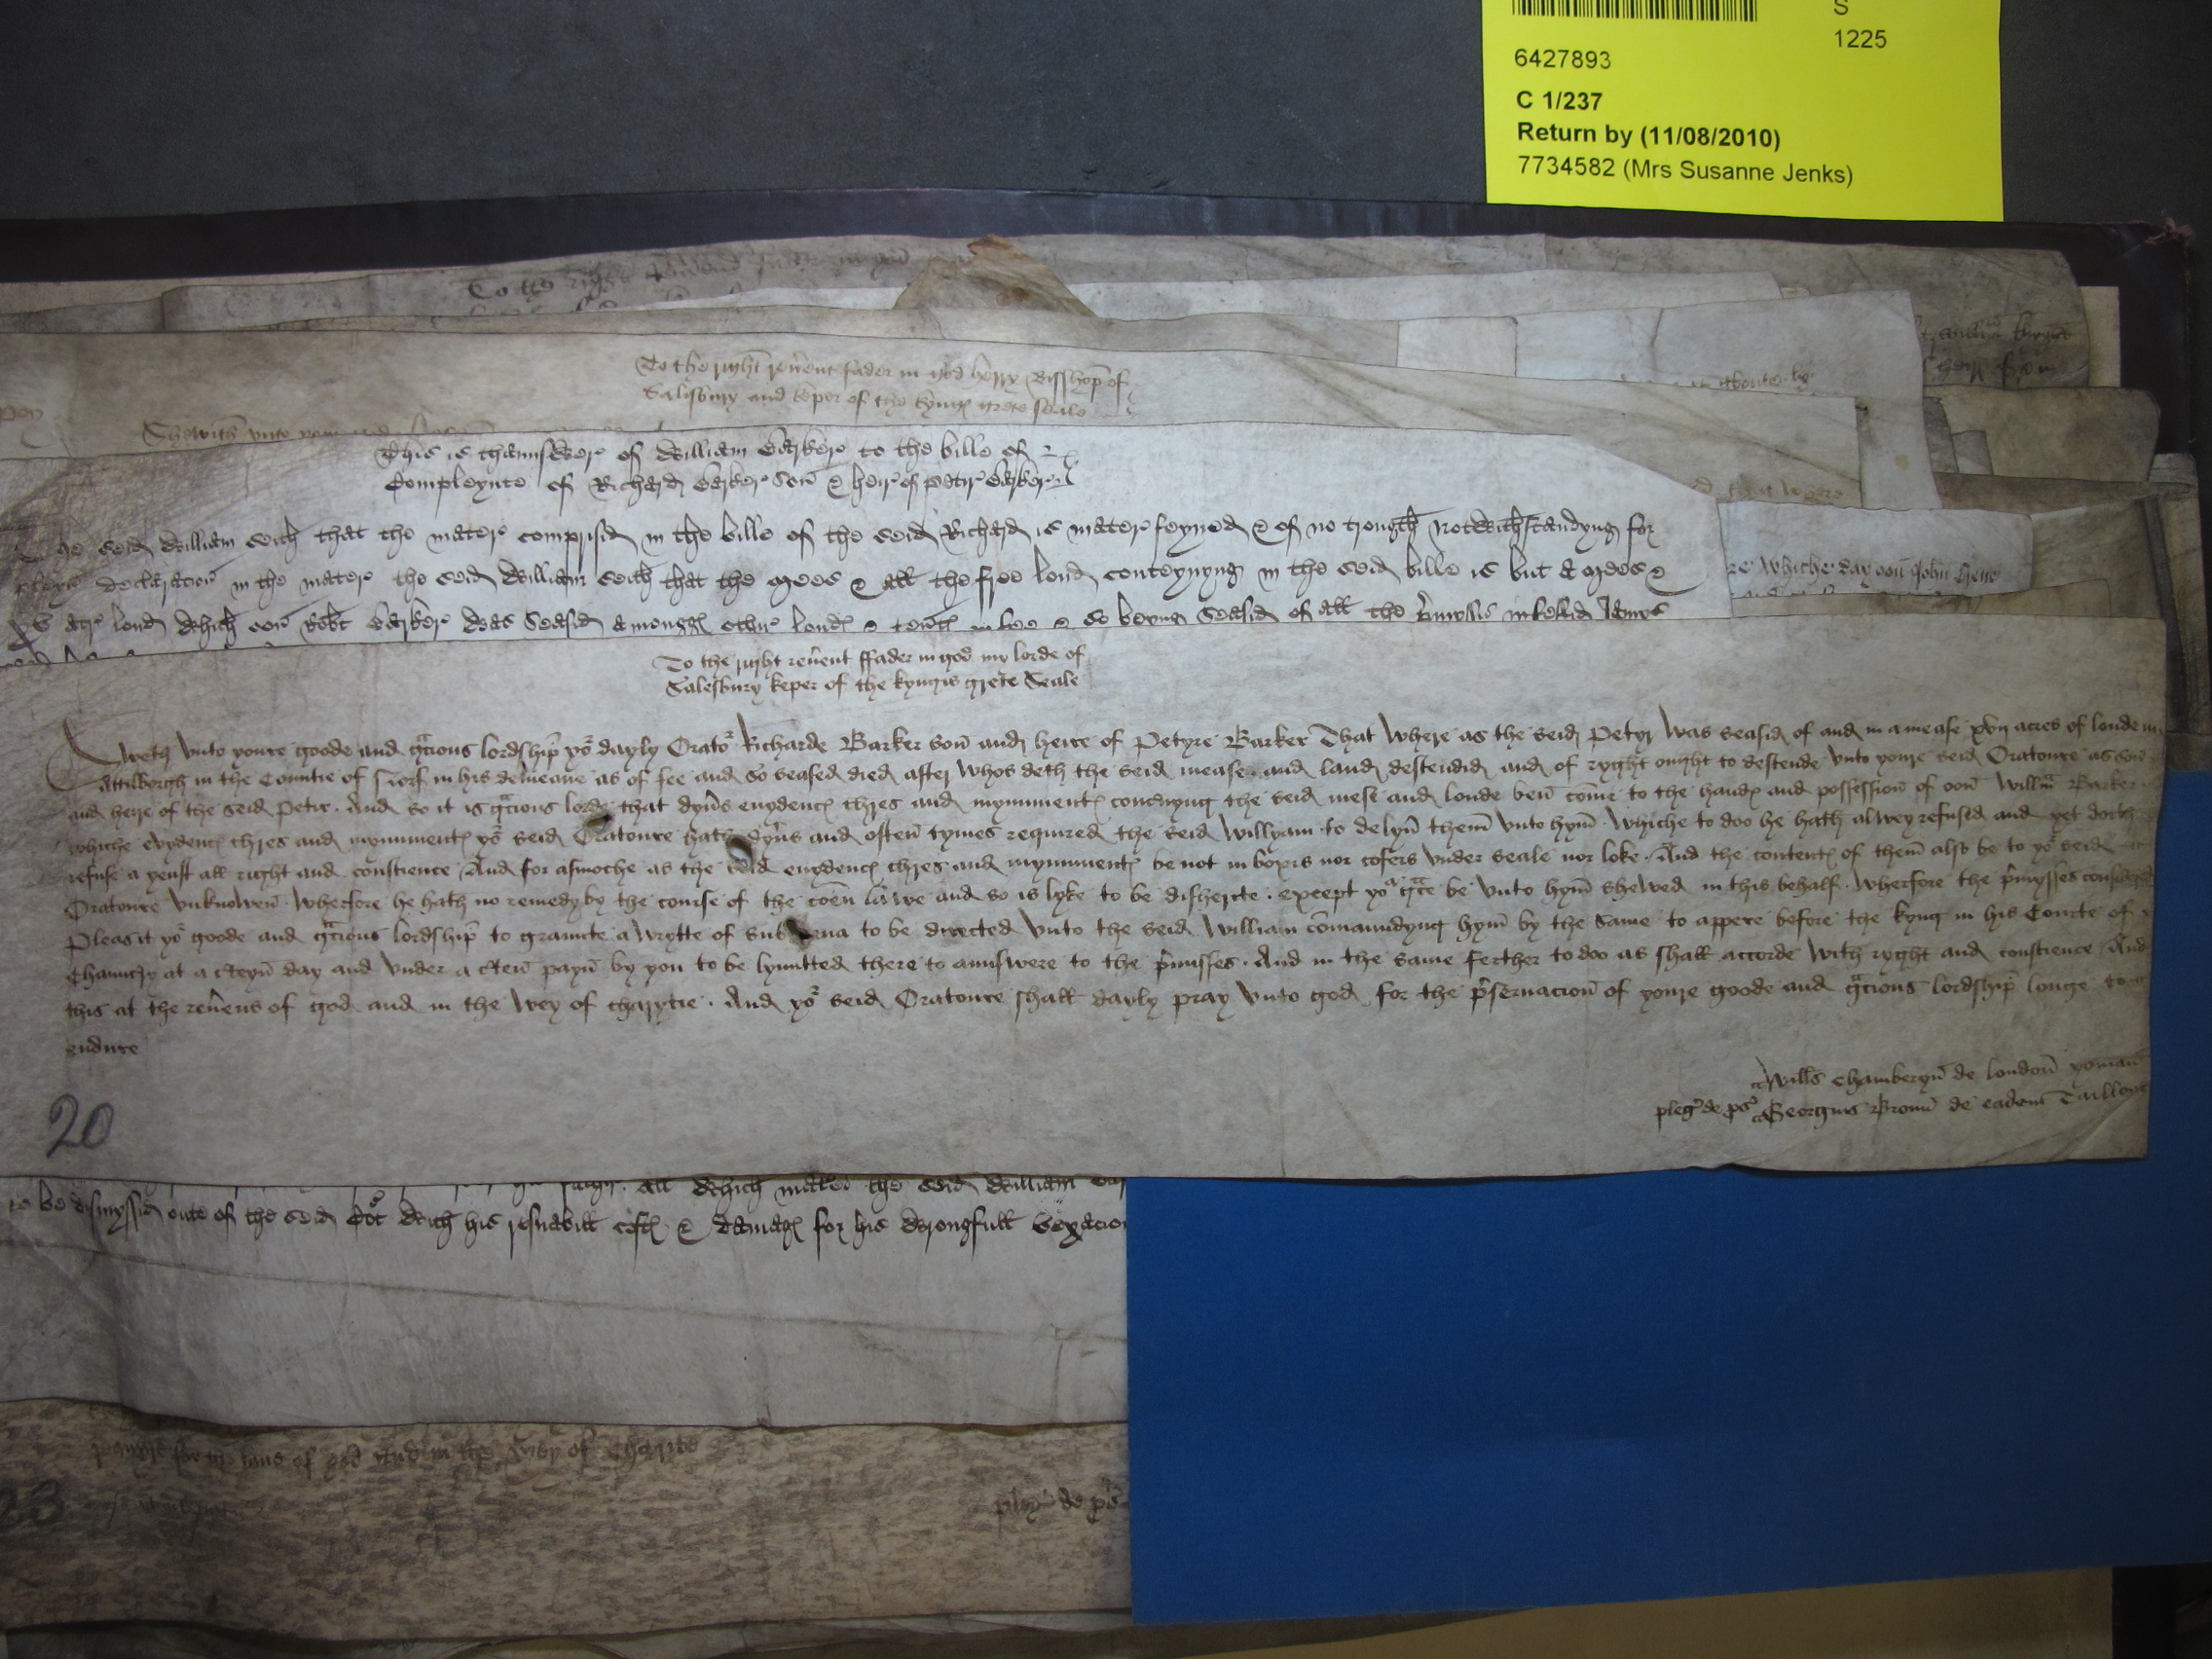 S
1225
6427893
C 1/237
Return by (11/08/2010)
7734582 (Mrs Susanne Jenks)
To the right
To the right reu̅ent fader in god henry Bisshop̅ of
Salisbury and keper of the kyng grete seale
Shewith vnto
This is thannswere of William Barker to the bille of
Compleynte of Richard Barker son̅ & heir of petir Barker
seid William seith that the mater comprisid in the bille of the seid Richard is mater feyned & of no trougth notwithstandyng for
declaracion̅ in the mater the seid William seith that the mees & all the free lond conteynyng in the seid bille is but a mees &
acr lond which oon̅ Rob̅t Barker was seasid amongg othir lond & ten̅t in fee & so beyng seasid of all the p̅myssis
re whiche day oon̅ John
To the right reu̅ent ffader in god my lorde of
Salesbury keper of the kyngis grete Seale
Sheweth vnto youre goode and gra̅cious lordship̅ yor dayly Orator Richarde Barker son̅ and heire of Petyre Barker That where as the seid Petyr was seasid of and in a mease xvij acres of londe in
Attilborgh in the Countie of Norf in his demeane as of fee and so seased died after whos deth the seid mease and land descendid and of ryght ought to descende vnto youre seid Oratoure as son̅
and heyre of the seid Petir. And so it is gra̅cious lorde that dyu̅s euydenc chres and mynument concernyng the seid mese and londe ben̅ com̅e to the hand and possession̅ of oon̅ Willm̅ Barker
whiche evydenc chres and mynument yor seid Oratoure hath dyu̅s and often̅ tymes required the seid Willyam to delyu̅ them̅ vnto hym̅ whiche to doo he hath alwey refused and yet doth
refuse a yenst all right and conscience And for asmoche as the seid euydenc chres and mynument be not in boxes nor cofers vnder seale nor loke. And the content of them̅ also be to yor seid
Oratoure vnknowen̅ wherfore he hath no remedy by the course of the com̅en lawe and so is lyke to be disherite. except yor gra̅ce be vnto hym̅ shewed in this behalf. wherfore the p̅mysses considered
Pleas it yor goode and gra̅cious lordship̅ to graunte a wrytte of sub ena to be directed vnto the seid William com̅aundyng hym̅ by the same to appere before the kyng in his Courte of
Chauncry at a c̅teyn̅ day and vnder a c̅ten̅ payn̅ by you to be lymitted there to aunswere to the p̅misses. And in the same ferther to doo as shall accorde with ryght and conscience And
this at the reu̅ens of god and in the wey of charytie. And yor seid Oratoure shall dayly pray vnto god for the p̅seruacion̅ of youre goode and gra̅cious lordship̅ longe to
endure
Will̅s Chamberyn̅ de london̅ yoman̅
pleg de ps̅ Georgius Broun̅ de eadem Taillour
20
all which mater the seid William
to be dismyssid oute of the seid Co̅t with his resnabill cost & damag for his wrongfull vexacion
of god and in the wey of charite
23
pleg de ps̅